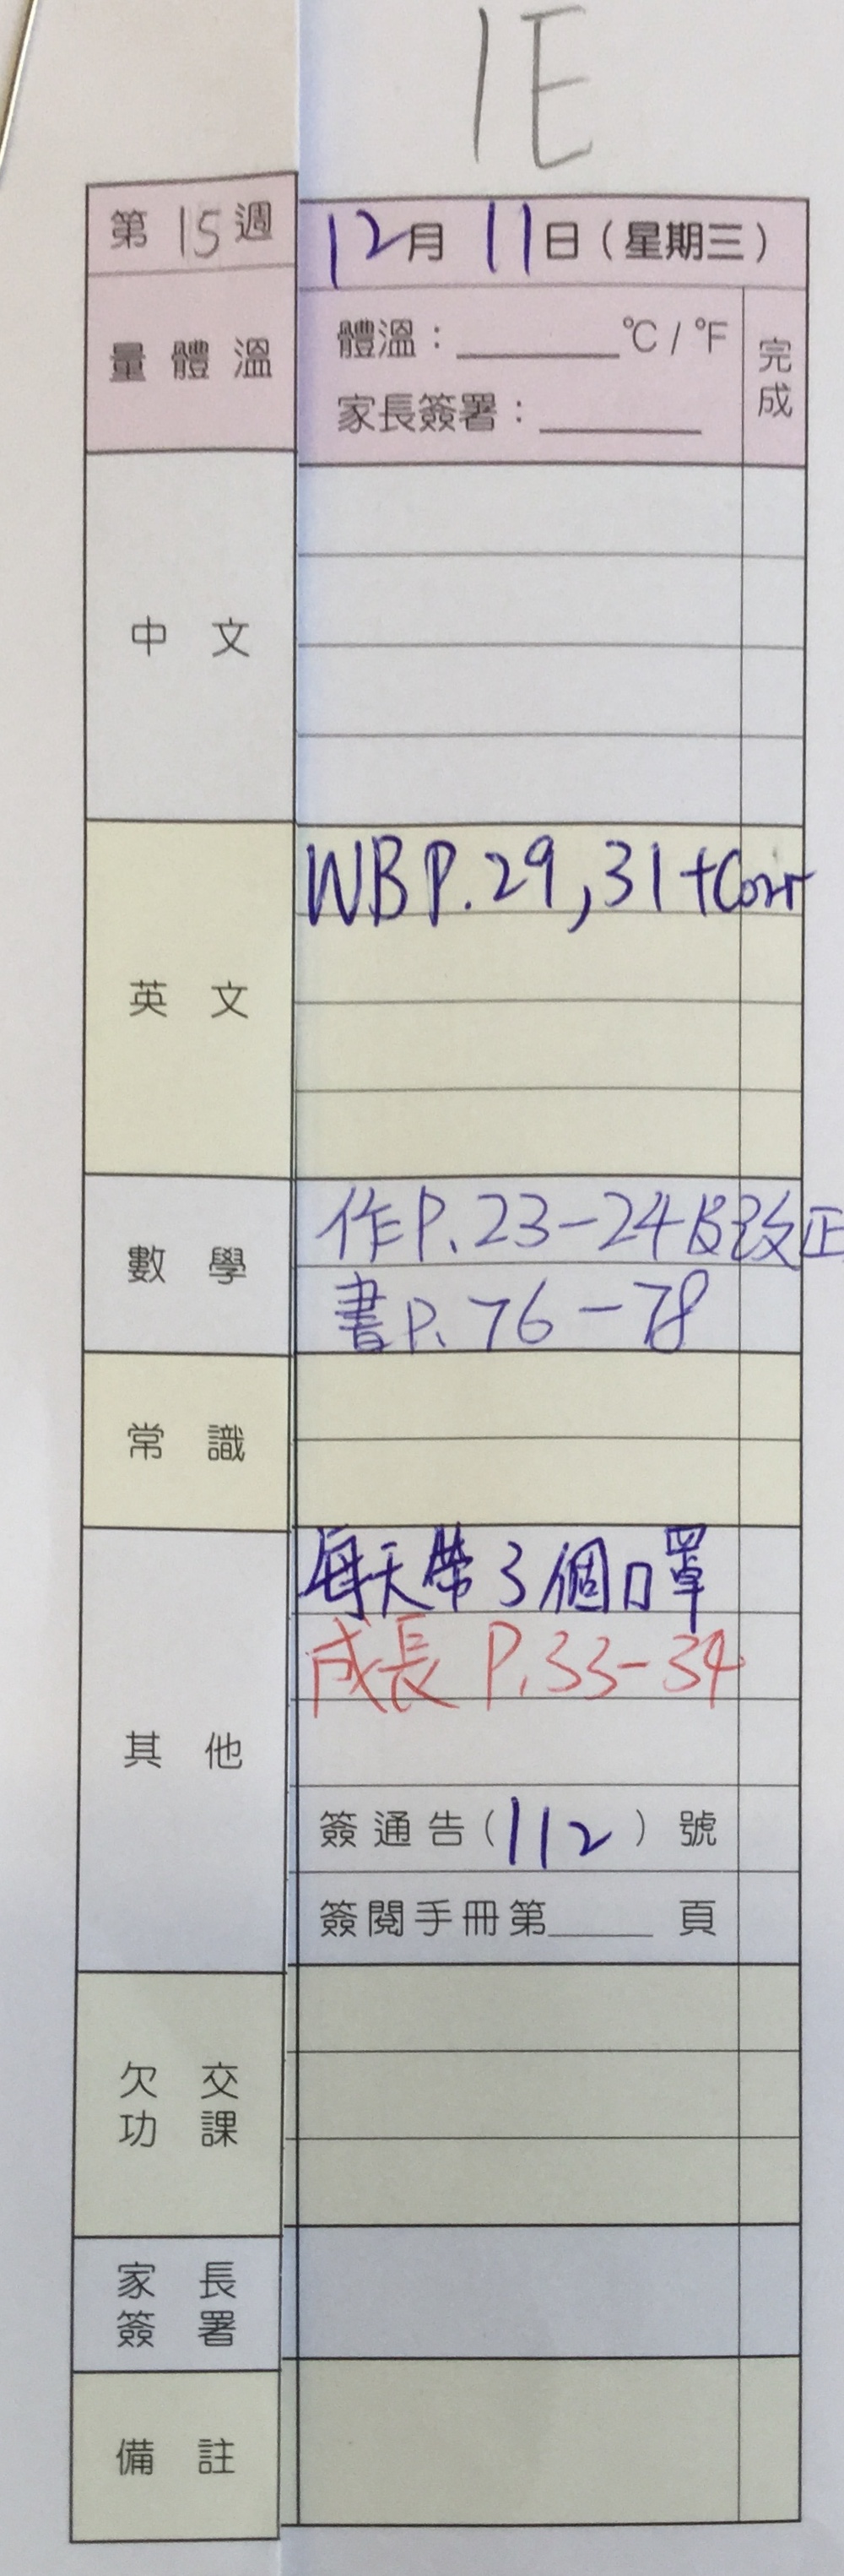 1E
第15週
12月11日（星期三）
量體溫
體溫：______°C / °F
家長簽署：______
完成
中文
英文
WB P.29,31+Corr
數學
作P.23-24及改正
書P.76-78
常識
其他
每天帶3個口罩
成長 P.33-34
簽通告(112)號
簽閱手冊第____頁
欠交
功課
家長
簽署
備註